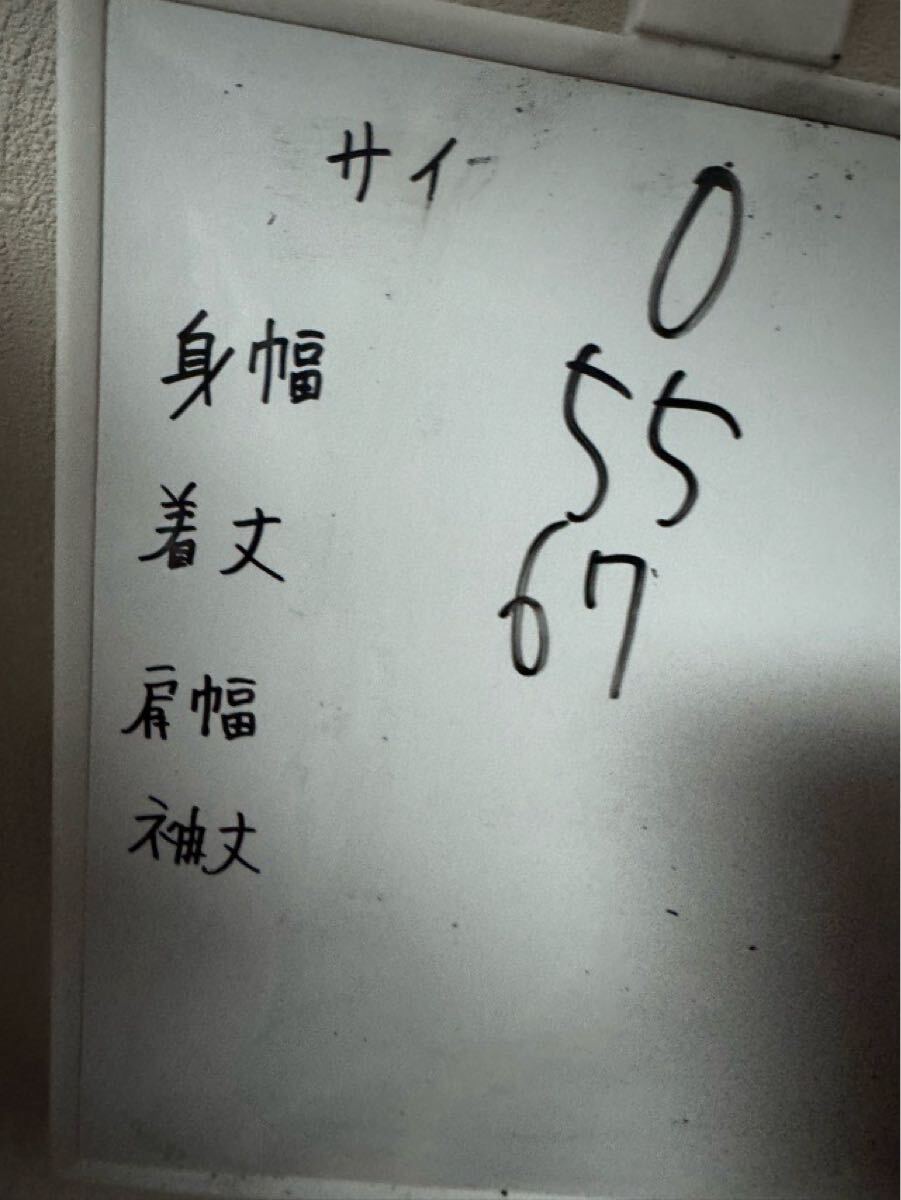 サイ 0
身幅 55
着丈 67
肩幅
袖丈